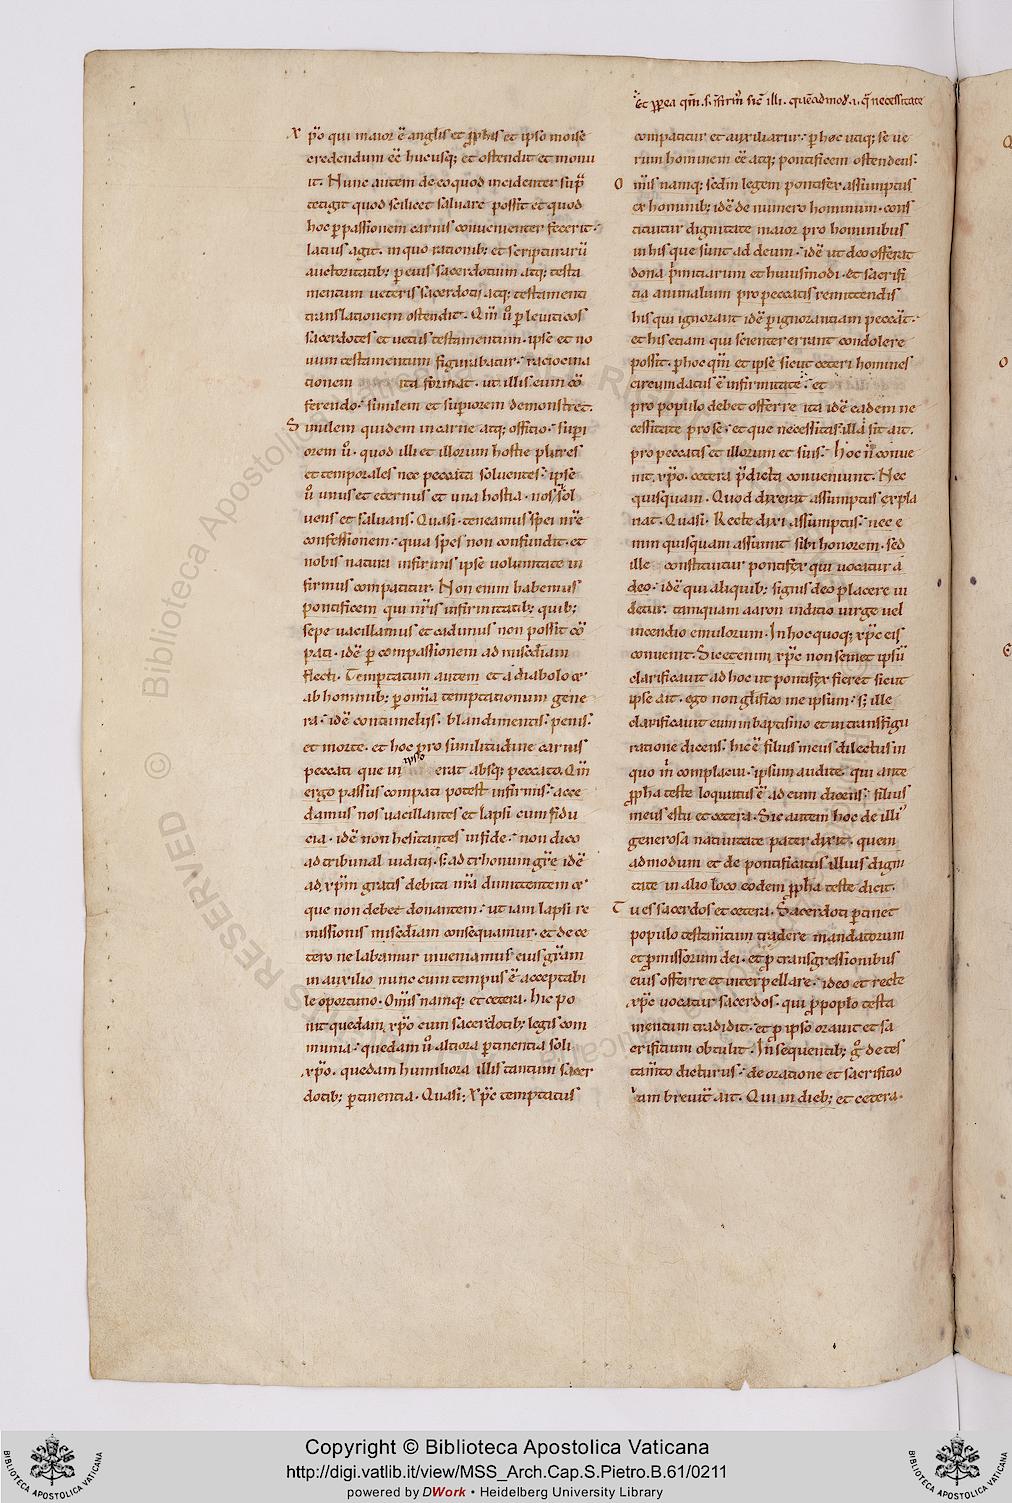 Et ꝓpt̄ea qm̄ .s. infirm̄ sic̄ illi . quēadmod̄ . a . q̄ necessitate
Xp̄o qui maior ē anglis et ꝓphis et ipso moise
credendum eē hucusq; et ostendit et monu
it. Nunc autem de eo quod incidenter sup̄
tetigit quod scilicet saluare possit et quod
hoc p̄ passionem carnis conuenienter fecerit·
latius agit. in quo rationib; et scripturarū
auctoritatib; p̄ eius sacerdotium atq; testa
mentum ueteris sacerdotij atq; testamenti
translationem ostendit. Qm̄ ū p̄ leuiticos
sacerdotes et uetus testamentum. ipse et no
uum testamentum figurabatur· ratiocina
tionem ita format. ut illis eum cō
ferendo· similem et sup̄iorem demonstret.
Similem quidem in carne atq; offitio· sup̄i
orem ū. quod illi et illorum hostie plures
et temporales nec peccata soluentes· ipse
ū unus et eternus et una hostia. nos sol
uens et saluans. Quasi. teneamus spei nr̄e
confessionem· quia spes non confundit. et
nobis natura infirmis ipse uoluntate in
firmus compatitur. Non enim habemus
pontificem qui nr̄is infirmitatib; quib;
sepe uacillamus et cadimus non possit cō
pati. idē p̄ compassionem ad misc̄diam
flecti. Temptatum autem et a diabolo et
ab hominib; p̄ om̄ia temptationum gene
ra· idē contumeliis· blandimentis· penis·
et morte. et hoc pro similitudine carnis
peccati que in ipso erat absq; peccato. Qm̄
ergo passus compati potest infirmis· acce
damus nos uacillantes et lapsi cum fidu
cia. idē non hesitantes in fide· non dico
ad tribunal iuditij. s; ad trhonum gr̄e idē
ad xp̄m gratis debita nr̄a dimittentem et
que non debet donantem· ut iam lapsi re
missionis misc̄diam consequamur. et de ce
tero ne labamur inueniamus eius gr̄am
in auxilio nunc cum tempus ē acceptabi
le oportuno. Om̄is namq; et cetera. hic po
nit quedam xp̄o cum sacerdotib; legis com
munia· quedam ū altiora p̄tinentia soli
xp̄o. quedam humiliora illis tantum sacer
dotib; p̄tinentia. Quasi; Xp̄c temptatus
compatitur et auxiliatur· p̄ hoc utiq; se ue
rum hominem eē atq; pontificem ostendens·
Om̄is namq; sedm̄ legem pontifex assumptus
ex hominib; idē de numero hominum. cons
tituitur dignitate maior pro hominibus
in his que sunt ad deum· idē ut deo offerat
dona p̄mitiarum et huiusmodi. et sacrifi
tia animalium pro peccatis remittendis
his qui ignorant idē p̄ ignorantiam peccāt·
et his etiam qui scienter errant condolere
possit. p̄ hoc qm̄ et ipse sicut ceteri homines
circumdatus ē infirmitate· et
pro populo debet offerre ita idē eadem ne
cessitate pro se· et que necessitas illa sit ait.
pro peccatis et illorum et suis· hoc n̄ conue
nit xp̄o. cetera p̄dicta conueniunt. Nec
quisquam. Quod dixerit assumptus expla
nat. Quasi. Recte dixi assumptus· nec e
nim quisquam assumit sibi honorem. sed
ille constituitur pontifex qui uocatur a
deo· idē qui aliquib; signis deo placere ui
detur. tamquam aaron inditio uirge uel
incendio emulorum. In hoc quoq; xp̄c eis
conuenit. Sic etenim xp̄c non semet ipsū
clarificauit ad hoc ut pontifex fieret sicut
ipse ait. ego non glifico me ipsum· s; ille
clarificauit eum in baptismo et in transfigu
ratione dicens. hic ē filius meus dilectus in
quo m̄ complacui· ipsum audite. qui ante
ꝓpha teste loquutus ē ad eum dicens· filius
meus es tu et cetera. Sic autem hoc de illi'
generosa natiuitate pater dixit. quem
admodum et de pontificatus illius digni
tate in alio loco eodem ꝓpha teste dicit.
Tu es sacerdos et cetera. Sacerdoti p̄tinet
populo testam̄tum tradere mandatorum
et ꝓmissorum dei. et ꝓ transgressionibus
eius offerre et interpellare. ideo et recte
xp̄c uocatur sacerdos. qui ꝓ poplo testa
mentum tradidit. et ꝓ ipso orauit et sa
crifitium obtulit. In sequentib; g̊ de tes
tam̄to dicturus· de oratione et sacrifitio
iam breuit̄ ait. Qui in dieb; et cetera.
Copyright © Biblioteca Apostolica Vaticana
http://digi.vatlib.it/view/MSS_Arch.Cap.S.Pietro.B.61/0211
powered by DWork • Heidelberg University Library